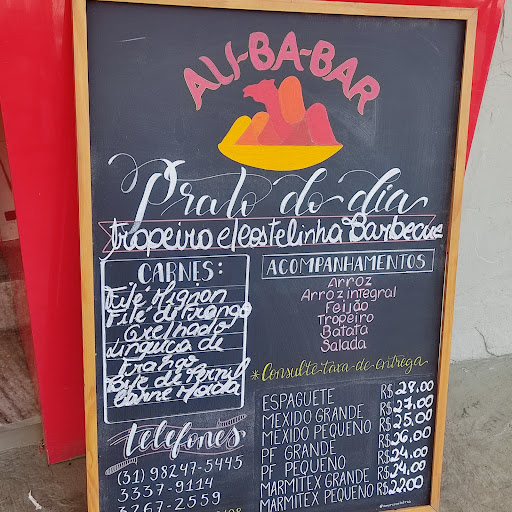 ALI-BA-BAR
Prato do dia
tropeiro e costelinha Barbecue
CARNES:
Filé Mignon
Filé di Frango
Grelhado
Linguiça de
Frango
Bife de Pernil
Carne Moída
ACOMPANHAMENTOS
Arroz
Arroz integral
Feijão
Tropeiro
Batata
Salada
*Consulte-taxa-de-entrega
ESPAGUETE R$28,00
MEXIDO GRANDE R$27,00
MEXIDO PEQUENO R$25,00
PF GRANDE R$26,00
PF PEQUENO R$24,00
MARMITEX GRANDE R$24,00
MARMITEX PEQUENO R$22,00
telefones
(31) 98247-5445
3337-9114
3267-2559